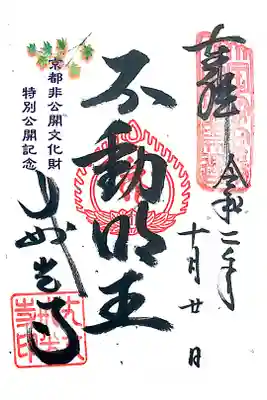 奉拝
令和二年
十月廿日
不動明王
京都非公開文化財
特別公開記念
妙光寺